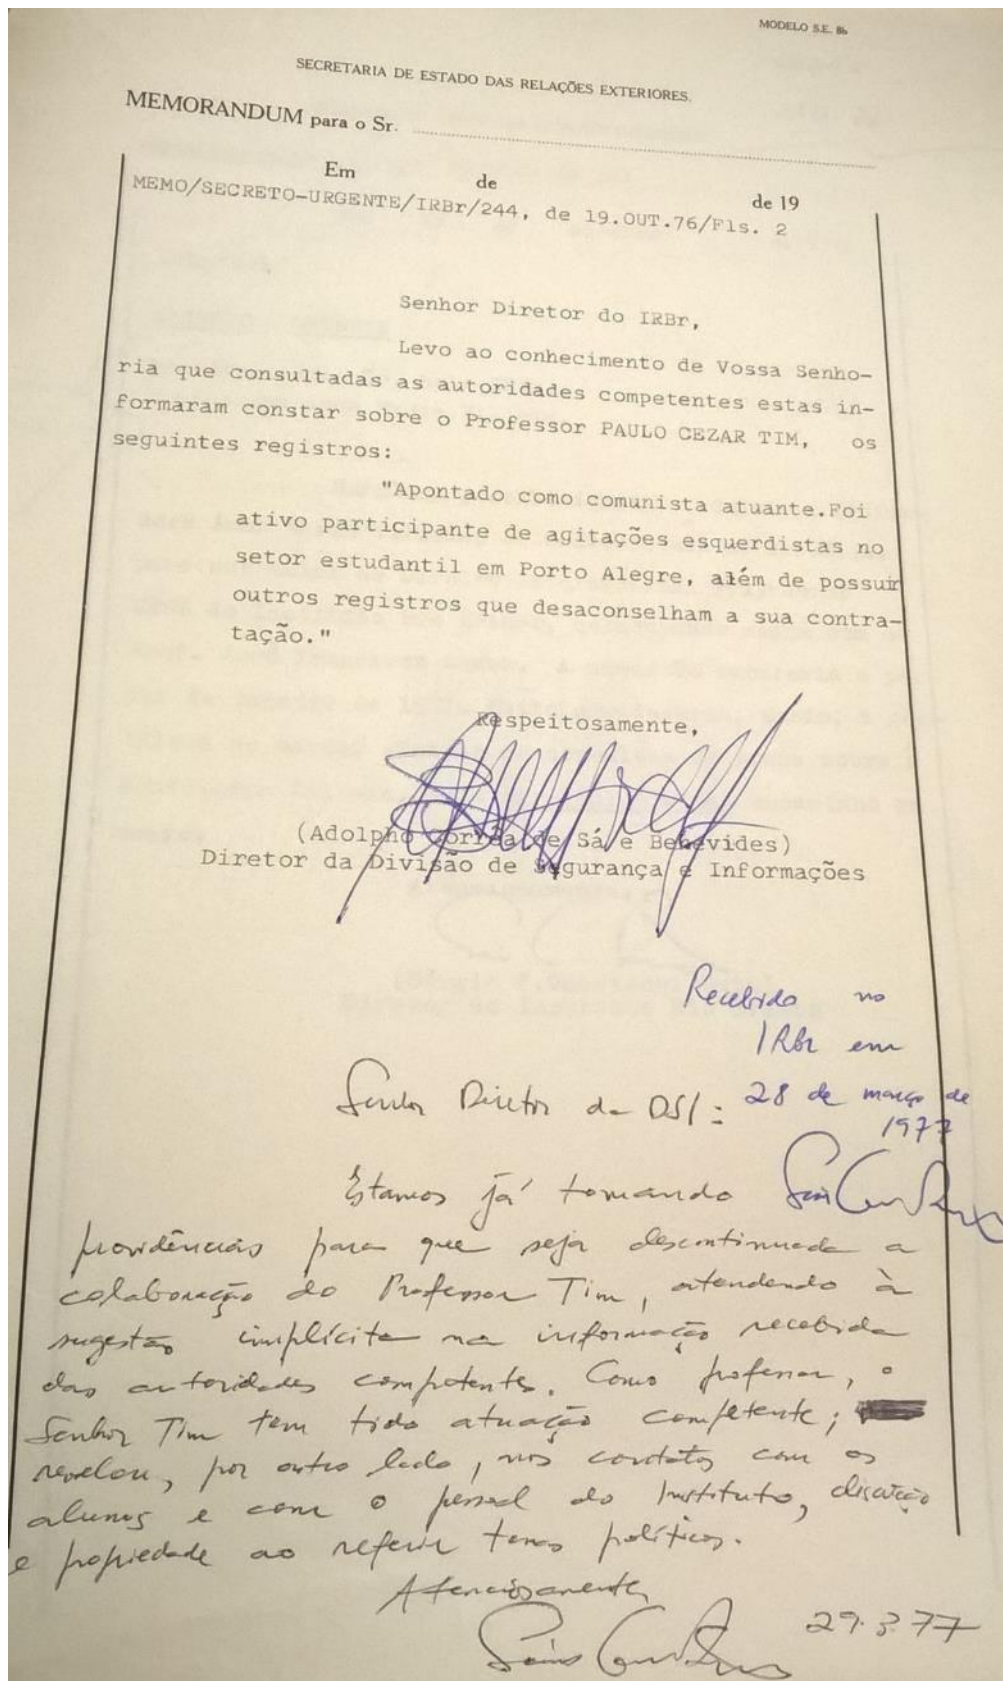 MODELO S.E. 8b
SECRETARIA DE ESTADO DAS RELAÇÕES EXTERIORES.
MEMORANDUM para o Sr.
Em de de 19
MEMO/SECRETO-URGENTE/IRBr/244, de 19.OUT.76/Fls. 2
Senhor Diretor do IRBr,
Levo ao conhecimento de Vossa Senho-
ria que consultadas as autoridades competentes estas in-
formaram constar sobre o Professor PAULO CEZAR TIM, os
seguintes registros:
"Apontado como comunista atuante.Foi
ativo participante de agitações esquerdistas no
setor estudantil em Porto Alegre, além de possuir
outros registros que desaconselham a sua contra-
tação."
Respeitosamente,
(Adolpho Corrêa de Sá e Benevides)
Diretor da Divisão de Segurança e Informações
Recebido no
IRBr em
28 de março de
1977
Senhor Diretor da DSI:
Estamos já tomando
providências para que seja descontinuada a
colaboração do Professor Tim, atendendo à
sugestão implícita na informação recebida
das autoridades competentes. Como professor, o
Senhor Tim tem tido atuação competente;
revelou, por outro lado, nos contatos com os
alunos e com o pessoal do Instituto, discrição
e propriedade ao referir temas políticos.
Atenciosamente,
29.3.77